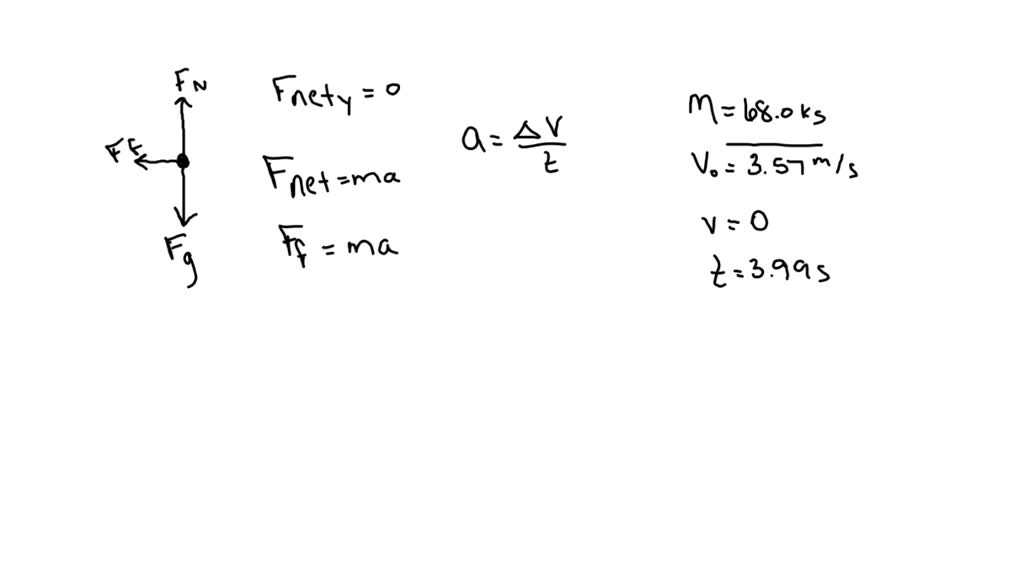 FN
Ff
Fg
Fnety = 0
Fnet = ma
Ff = ma
a = ΔV/t
m = 68.0 kg
V₀ = 3.57 m/s
v = 0
t = 3.99 s